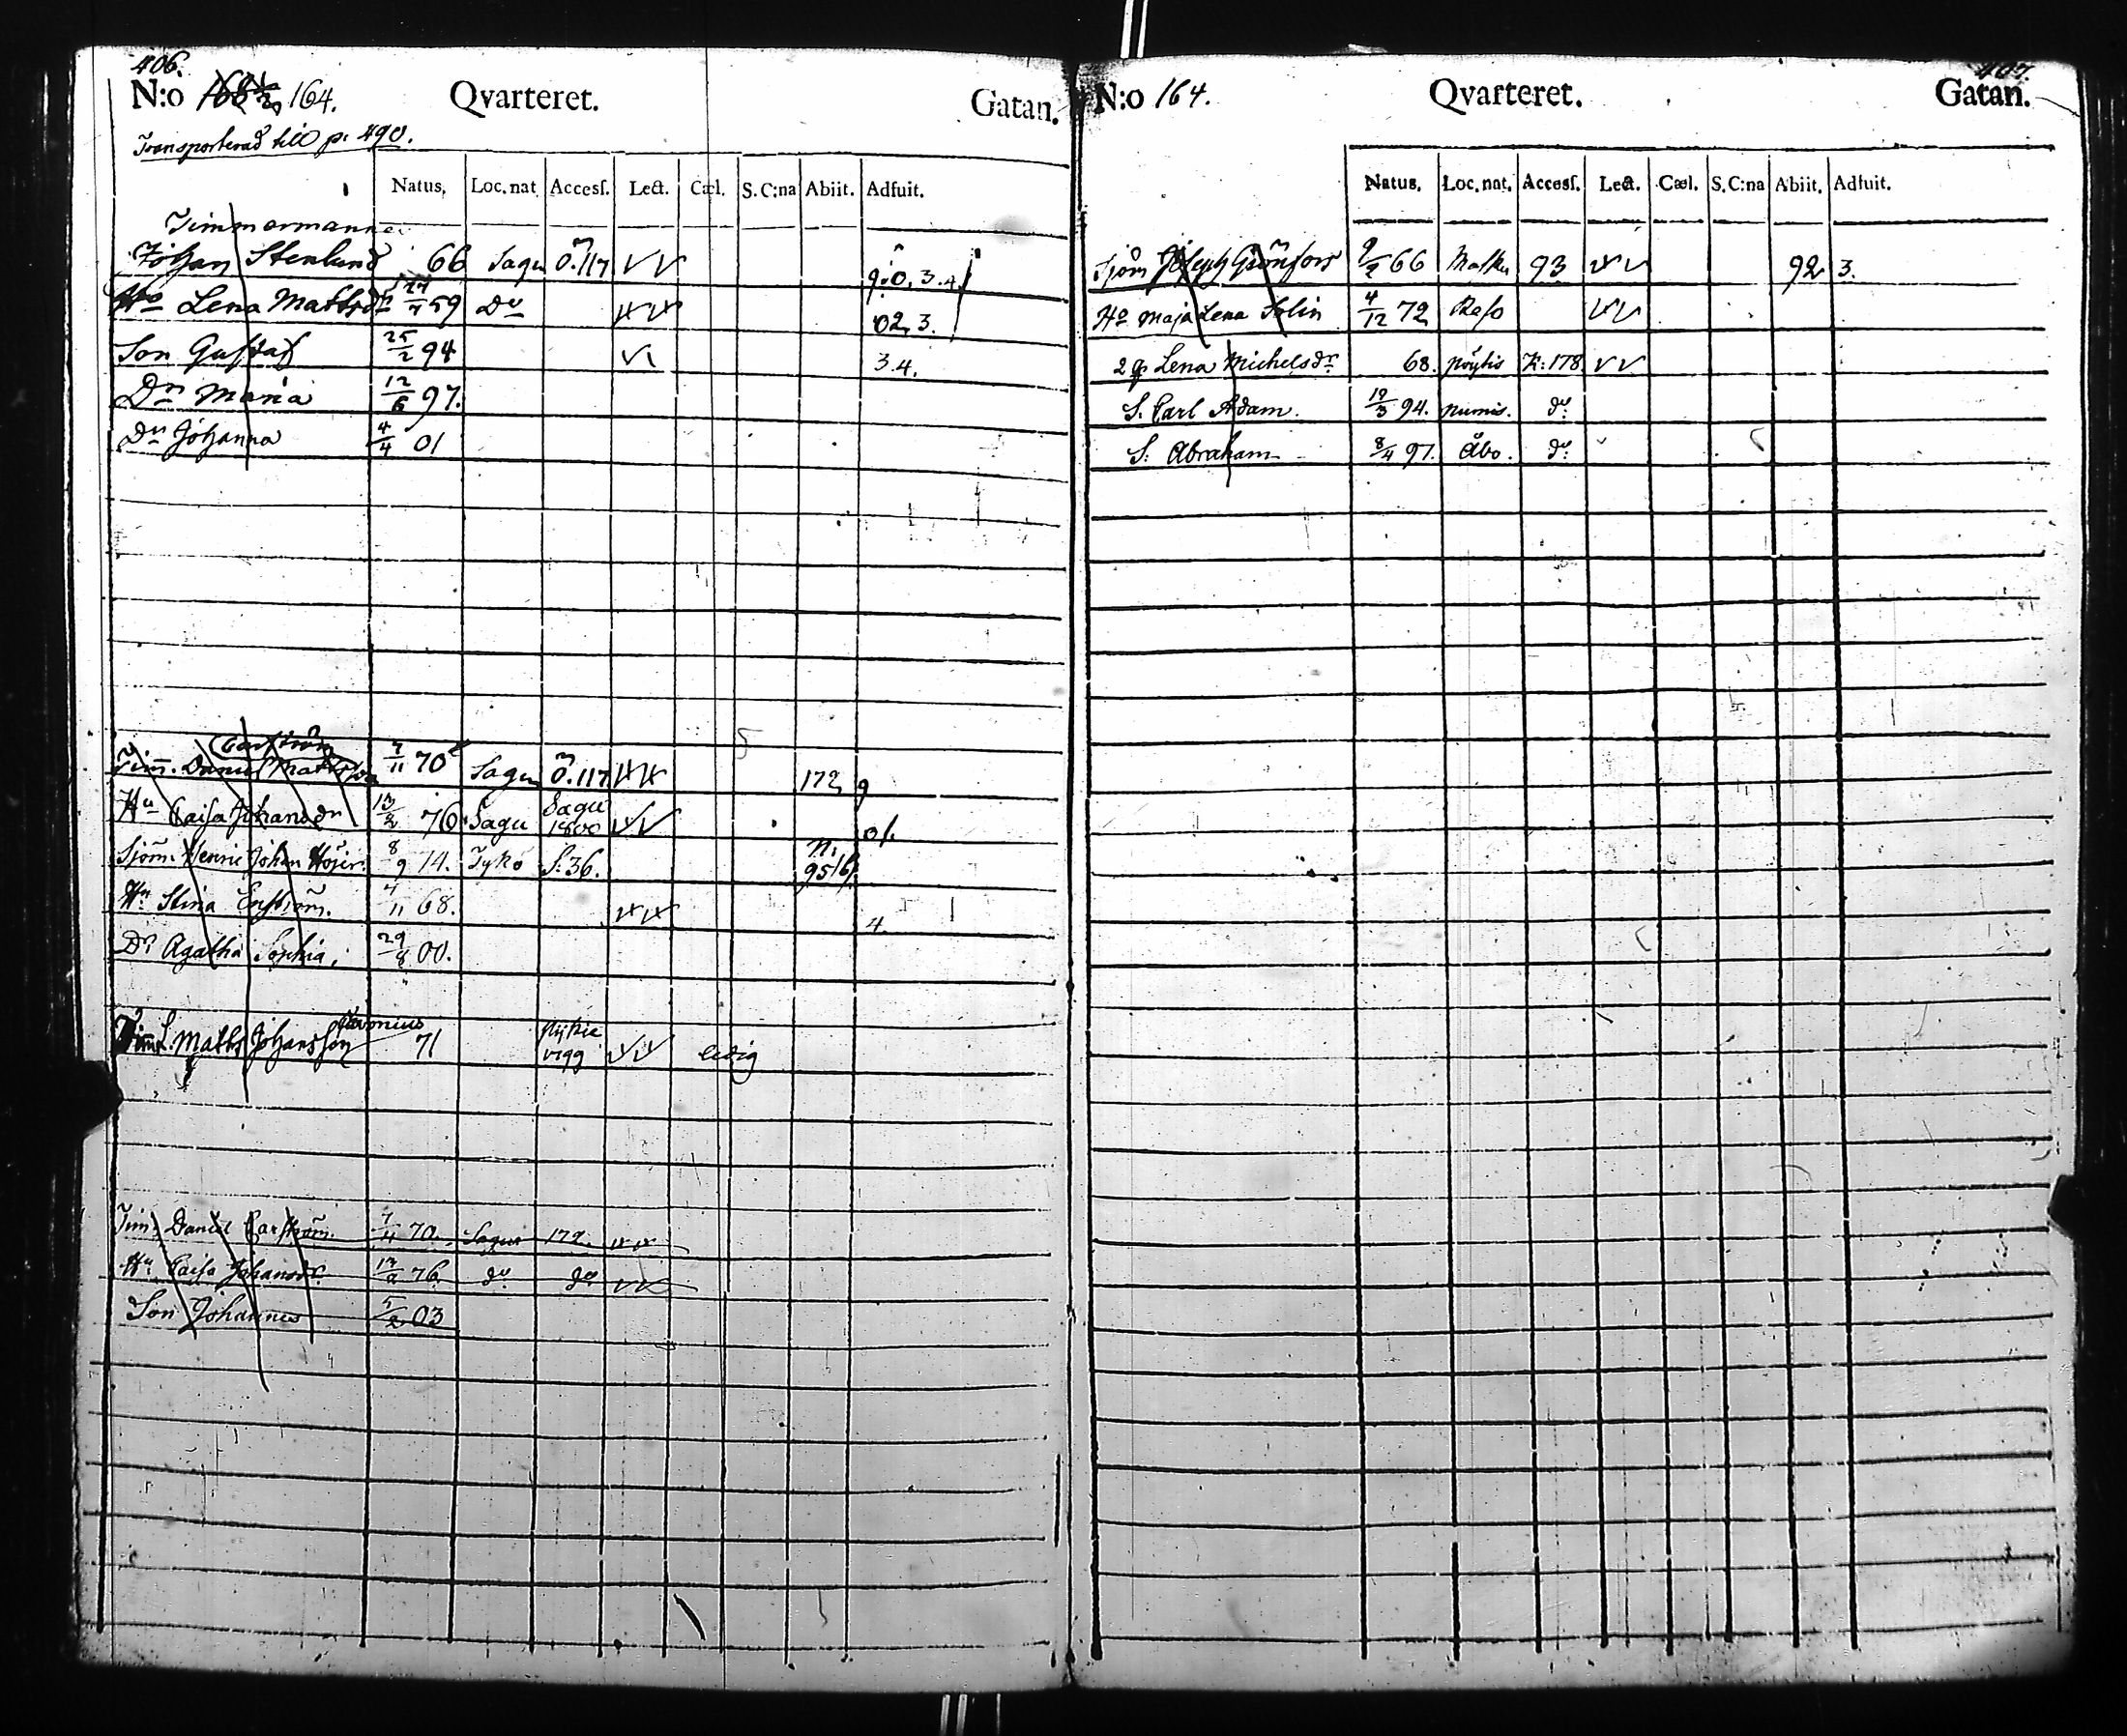 406.
N:o 164. Qvarteret. Gatan.
Transporterad till p: 490.
Natus, Loc. nat Accesſ. Lect. Cæl. S. C:na Abiit. Adfuit.
Timmermannen
Johan Stenlund 66 Sagu Ö.117
9. 0. 3. 4.
Hu Lena Mattsdr 59 Do
02, 3.
Son Gustaf 25/2 94 3. 4.
Dr Maria 12/6 97.
Dr Johanna 4/4 01
Carlström
Timm. Daniel Mattsson 7/11 70 Sagu Ö.117 172 9
Hu Caisa Johansdr 13/2 76. Sagu Sagu 1800 01.
Sjöm. Henric Johan Höijer. 8/9 14. Tyko S:36. n. 95
Hu Stina 4/11 68. 4
Dr Agatha Sophia, 29/8 00.
Matts Johansson 71 ledig
Tim. Daniel Carlström. 70. Sagu 172.
Hu Caisa Johansdr 76. do do
Son Johannes 5/2 03
407.
N:o 164. Qvarteret. Gatan.
Natus. Loc. nat. Accesſ. Lect. Cæl. S. C:na Abiit. Adfuit.
Sjöm Joseph Grönfors 66 Masku 93 92 3.
Hu Maja Lena Solin 4/12 72 Reso
2 g Lena Michelsdr 68. pöytis K:178
S. Carl Adam. 19/3 94. numis. do
S. Abraham 8/4 97. Åbo. do